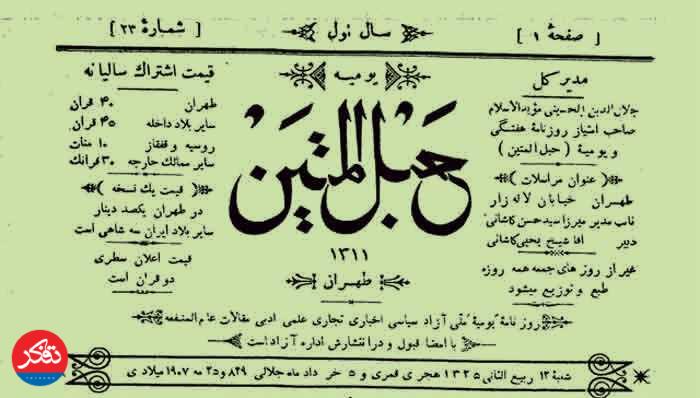 [ صفحهٔ ۱ ]
سال نول
[ شمارهٔ ۲۳ ]
مدیر کل
جلال الدین الحسینی مؤید الاسلام
صاحب امتیاز روزنامهٔ هفتگی
و یومیهٔ ( حبل المتین )
( عنوان مراسلات )
طهران خیابان لاله زار
نائب مدیر میرزا سید حسن کاشانی
دبیر آقا شیخ یحیی کاشانی
غیر از روز های جمعه همه روزه
طبع و توزیع میشود
یومیه
حبل المتین
۱۳۱۱
طهران
قیمت اشتراك سالیانه
طهران ۴۰ قران
سایر بلاد داخله ۴۵ قران
روسیه و قفقاز ۱۰ منات
سایر ممالك خارجه ۳۰ فرانك
( قیمت یك نسخه )
در طهران یکصد دینار
سایر بلاد ایران سه شاهی است
قیمت اعلان سطری
دو قران است
روزنامهٔ یومیهٔ ملی آزاد سیاسی اخباری تجاری علمی ادبی مقالات عام المنفعه
با امضا قبول و در انتشارش اداره آزاد است
شنبه ۱۲ ربیع الثانی ۱۳۲۵ هجری قمری و ۵ خرداد ماه جلالی ۸۲۹ و ۲۵ مه ۱۹۰۷ میلادی
تفکر